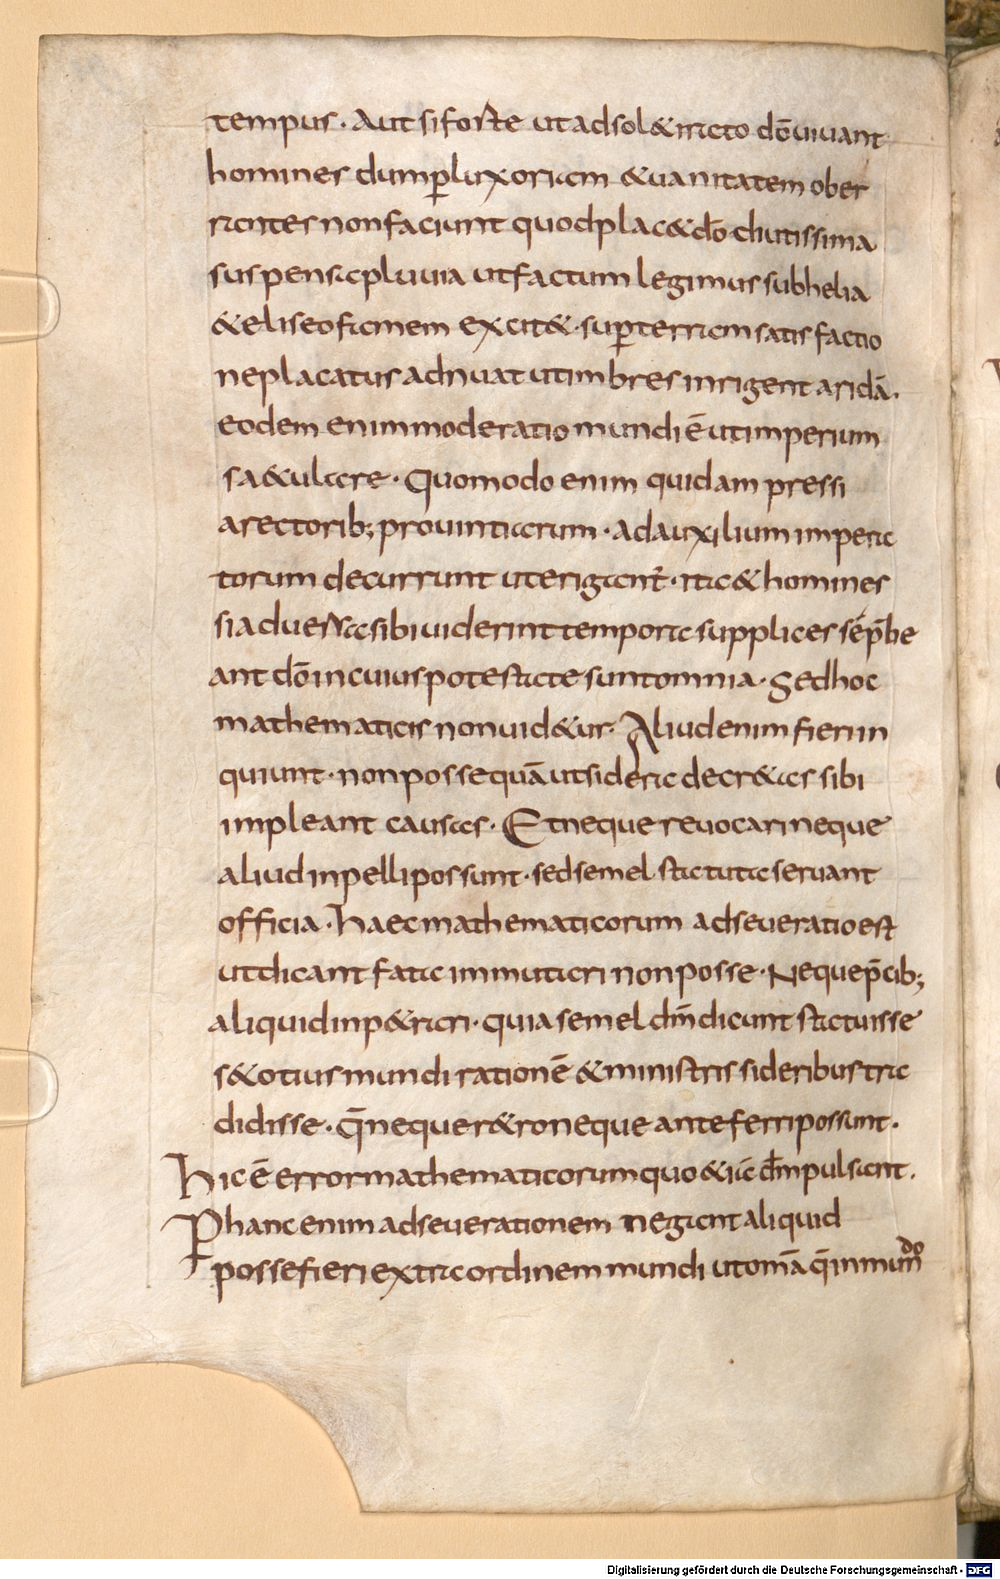 tempus · Aut si forte ut ad sol&incto dō uiuant
homines dum p̲ luxoriam & uanitatem ober
rantes non faciunt quod plac& dō · diutissima
suspensa pluuia ut factum legimus sub helia
& eliseo famem excit& · sup̲ terram satisfactio
ne placatus adnuat ut imbres inrigent aridā .
eodem enim moderatio mundi ē ut imperium
sa&ulare · Quomodo enim quidam pressi
a rectorib; prouintiarum · ad auxilium impera
torum decurrunt ut erigant̄ · ita & homines
si aduersa sibi uiderint tempora supplices se p̄be
ant dō in cuius potestate sunt omnia · Sed hoc
mathematicis non uid&ur · Aliud enim fieri in
quiunt · non posse quā ut sidera decr&as sibi
impleant causas · Et neque reuocari neque
aliud inpelli possunt · sed semel statuta seruant
officia · Haec mathematicorum adseueratio est
ut dicant fata immutari non posse · Neque p̄cib;
aliquid inp&rari · quia semel dm̄ dicunt statuisse
s& otius mundi rationē & ministris sideribus tra
didisse · q̄ neque r&ro neque ante ferri possunt .
Hic ē error mathematicorum quo & iā dm̄ pulsant .
P̲ hanc enim adseuerationem negant aliquid
posse fieri extra ordinem mundi ut omā q̄ in mun
do
Digitalisierung gefördert durch die Deutsche Forschungsgemeinschaft - DFG